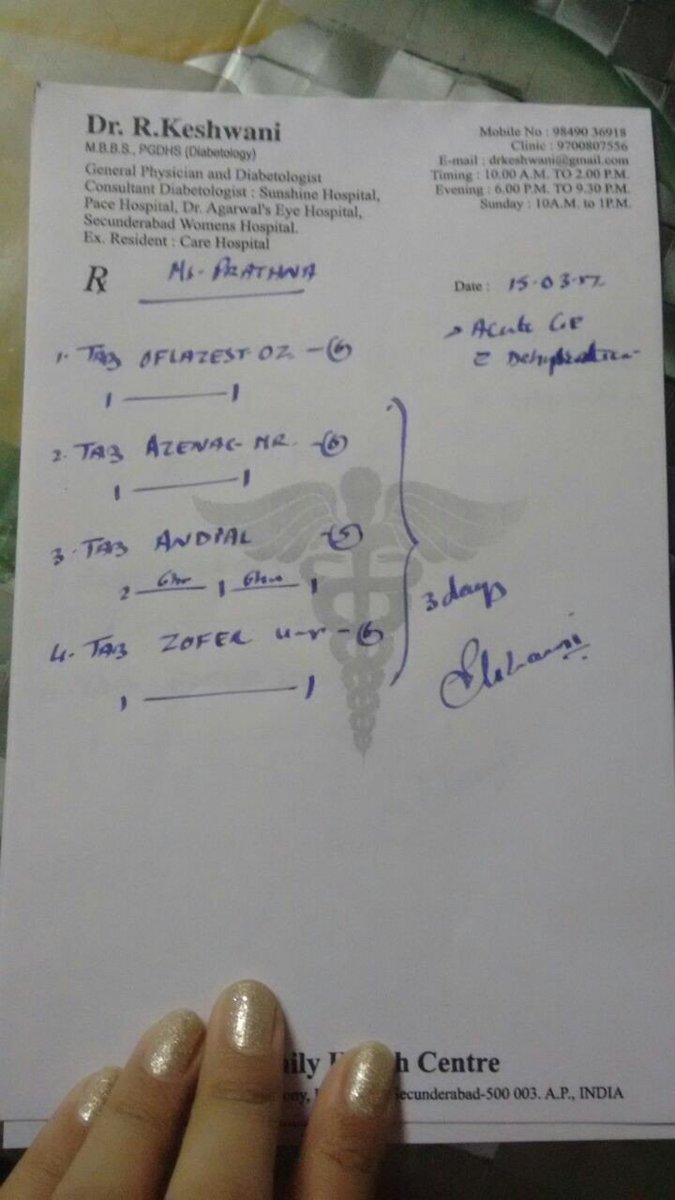 Dr. R.Keshwani
M.B.B.S., PGDHS (Diabetology)
General Physician and Diabetologist
Consultant Diabetologist : Sunshine Hospital,
Pace Hospital, Dr. Agarwal's Eye Hospital,
Secunderabad Womens Hospital.
Ex. Resident : Care Hospital
Mobile No : 98490 36918
Clinic : 9700807556
E-mail : drkeshwani@gmail.com
Timing : 10.00 A.M. TO 2.00 P.M.
Evening : 6.00 P.M. TO 9.30 P.M.
Sunday : 10A.M. to 1P.M.
Rx Ms. PRATHNA
Date : 15-03-
→ Acute GE
c Dehydration
1. TAB OFLAZEST OZ - 6
1 — 1
2. TAB AZENAC-MR - 6
1 — 1
3. TAB ANDIAL - 5
2 6hr 1 6hr 1
4. TAB ZOFER - 6
1 — 1
3 days
Centre
Secunderabad-500 003. A.P., INDIA